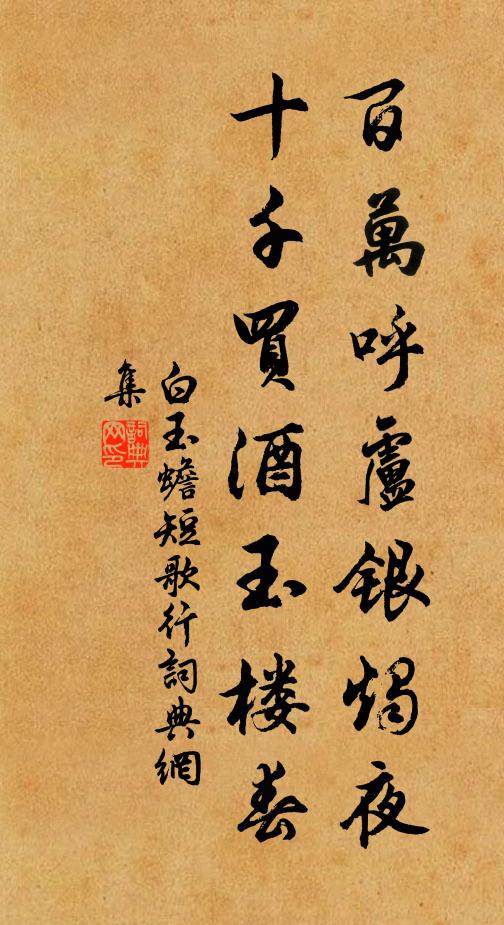 百萬呼盧銀燭夜
十千買酒玉楼春
白玉蟾短歌行詞典網
集
詞典
网印